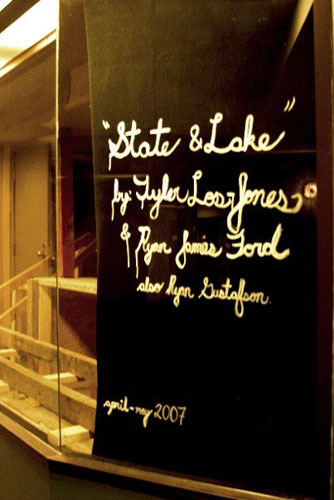 "State & Lake"
by: Tyler Los-Jones
& Ryan James Ford
also Ryan Gustafson.
april - may 2007